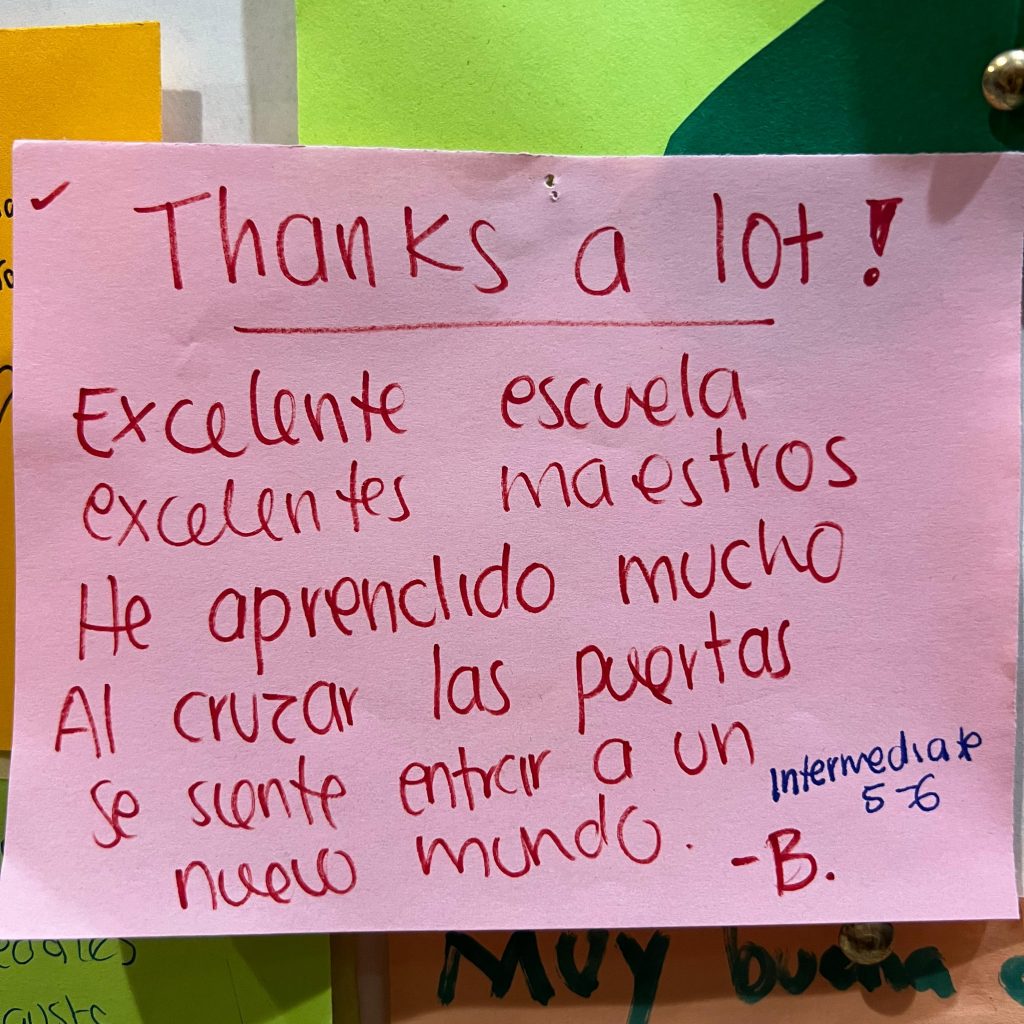 Thanks a lot!
Excelente escuela
excelentes maestros
He aprendido mucho
Al cruzar las puertas
se siente entrar a un
nuevo mundo.
Intermediate
5-6
-B.
Muy buena